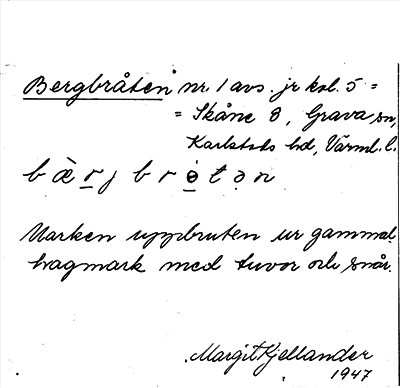 Bergbråten nr. 1 avs. jr ksl. 5 =
= Skåne 8, Grava sn,
Karlstads hd, Värml. l.
b æ̀ r̲ j b r ò̲ t ə n
Marken uppbruten ur gammal
hagmark med tuvor och snår.
Margit Kjellander
1947